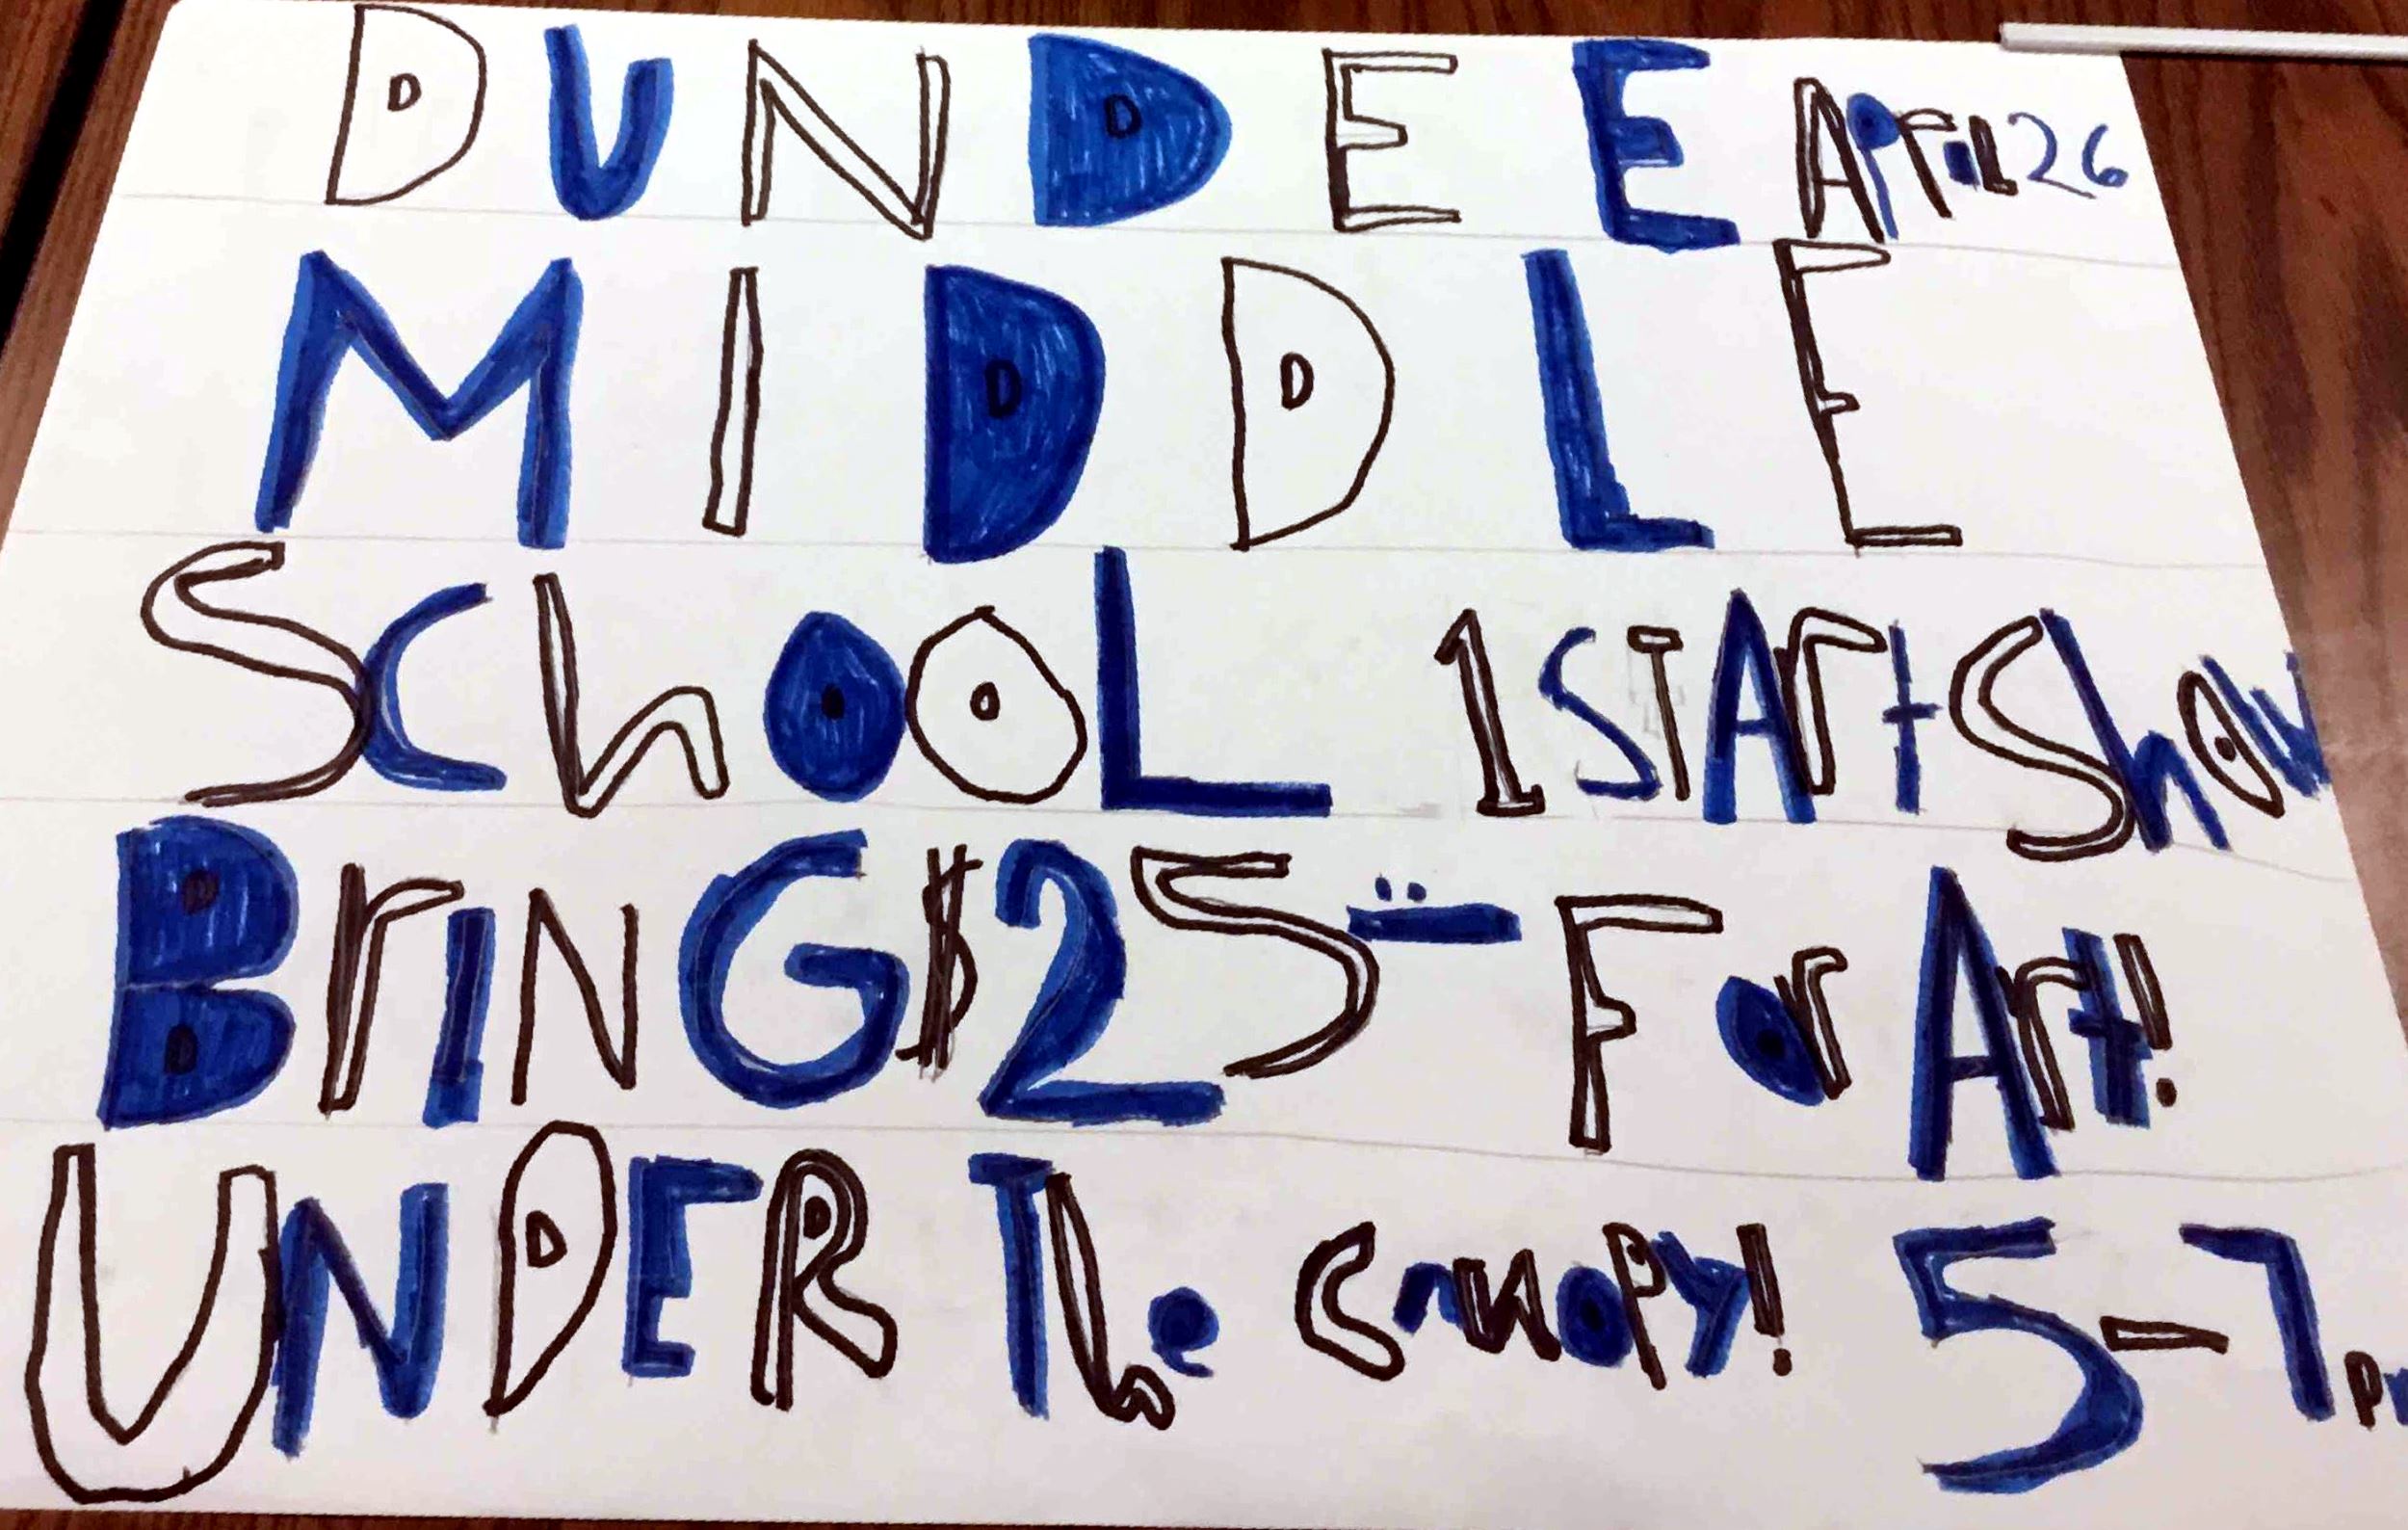 DUNDEE April 26
MIDDLE
SchooL 1ST Art Show
BrinG $25 For Art!
UNDER The Canopy! 5-7 pm